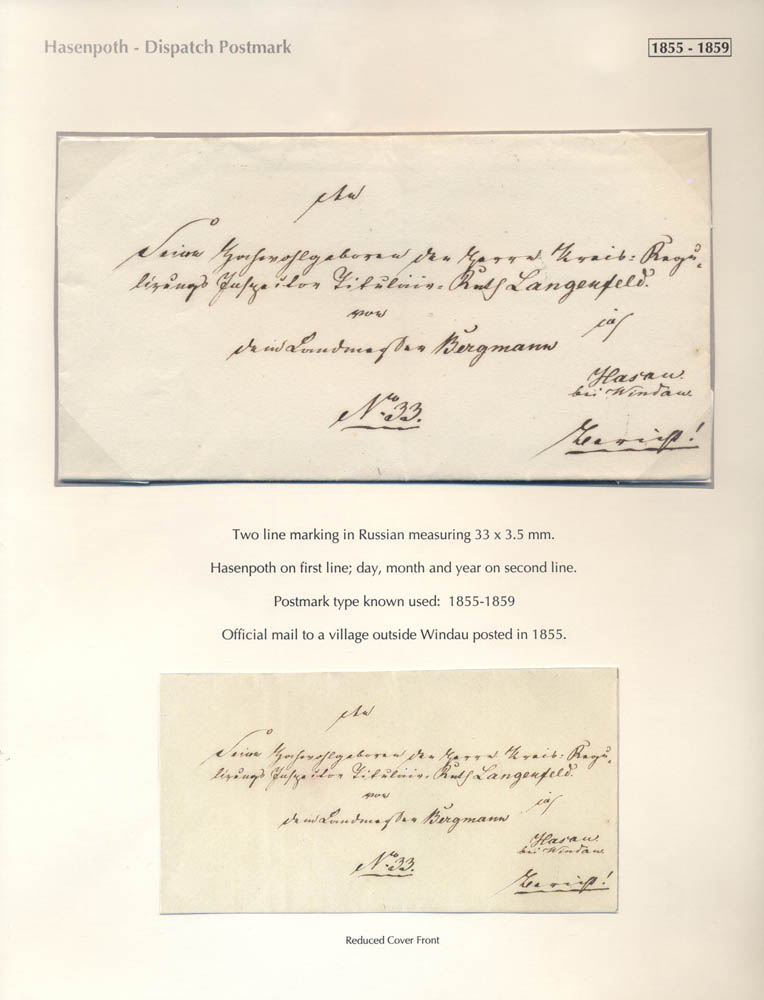 Hasenpoth - Dispatch Postmark
1855 - 1859
An
Seine Hochwohlgeboren den Herrn Kreis: Regu-
lirungs Inspector Titulair-Rath Langenfeld.
von
in
dem Landmesser Bergmann
Hasau
bei Windau
No 33.
Bericht!
Two line marking in Russian measuring 33 x 3.5 mm.
Hasenpoth on first line; day, month and year on second line.
Postmark type known used: 1855-1859
Official mail to a village outside Windau posted in 1855.
An
Seine Hochwohlgeboren den Herrn Kreis: Regu-
lirungs Inspector Titulair-Rath Langenfeld.
von
in
dem Landmesser Bergmann
Hasau
bei Windau
No 33.
Bericht!
Reduced Cover Front